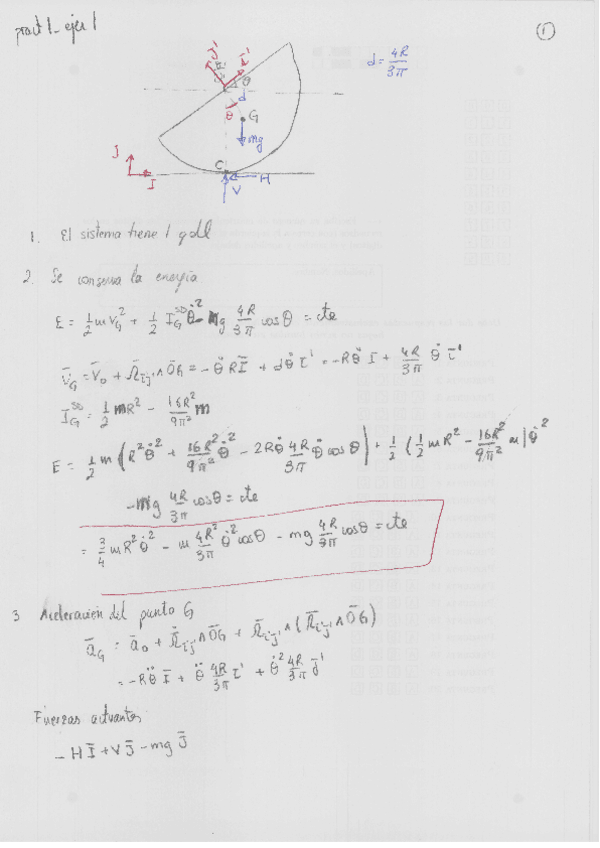 pract 1_ ejer 1
1
d = 4R/3π
j' i'
θ
d
θ G
mg
J
I
C
H
V
1. El sistema tiene 1 gdll
2. Se conserva la energía
E = 1/2 m v_G² + 1/2 I_G^SD θ̇² - mg 4R/3π cosθ = cte
v̄_G = v̄_0 + Ω̄_ij' ∧ ŌG = -θ̇ R Ī + dθ̇ ī' = -Rθ̇ I + 4R/3π θ̇ ī'
I_G^SD = 1/2 mR² - 16R²/9π² m
E = 1/2 m (R²θ̇² + 16R²/9π² θ̇² - 2Rθ̇ 4R/3π θ̇ cosθ) + 1/2 (1/2 mR² - 16R²/9π² m) θ̇²
- mg 4R/3π cosθ = cte
= 3/4 mR²θ̇² - m 4R²/3π θ̇² cosθ - mg 4R/3π cosθ = cte
3 Aceleración del punto G
ā_G = ā_0 + Ω̄̇_ij' ∧ ŌG + Ω̄_i'j' ∧ (Ω̄_i'j' ∧ ŌG)
= -Rθ̈ Ī + θ̈ 4R/3π ī' + θ̇² 4R/3π j̄'
Fuerzas actuantes
- H Ī + V J̄ - mg J̄